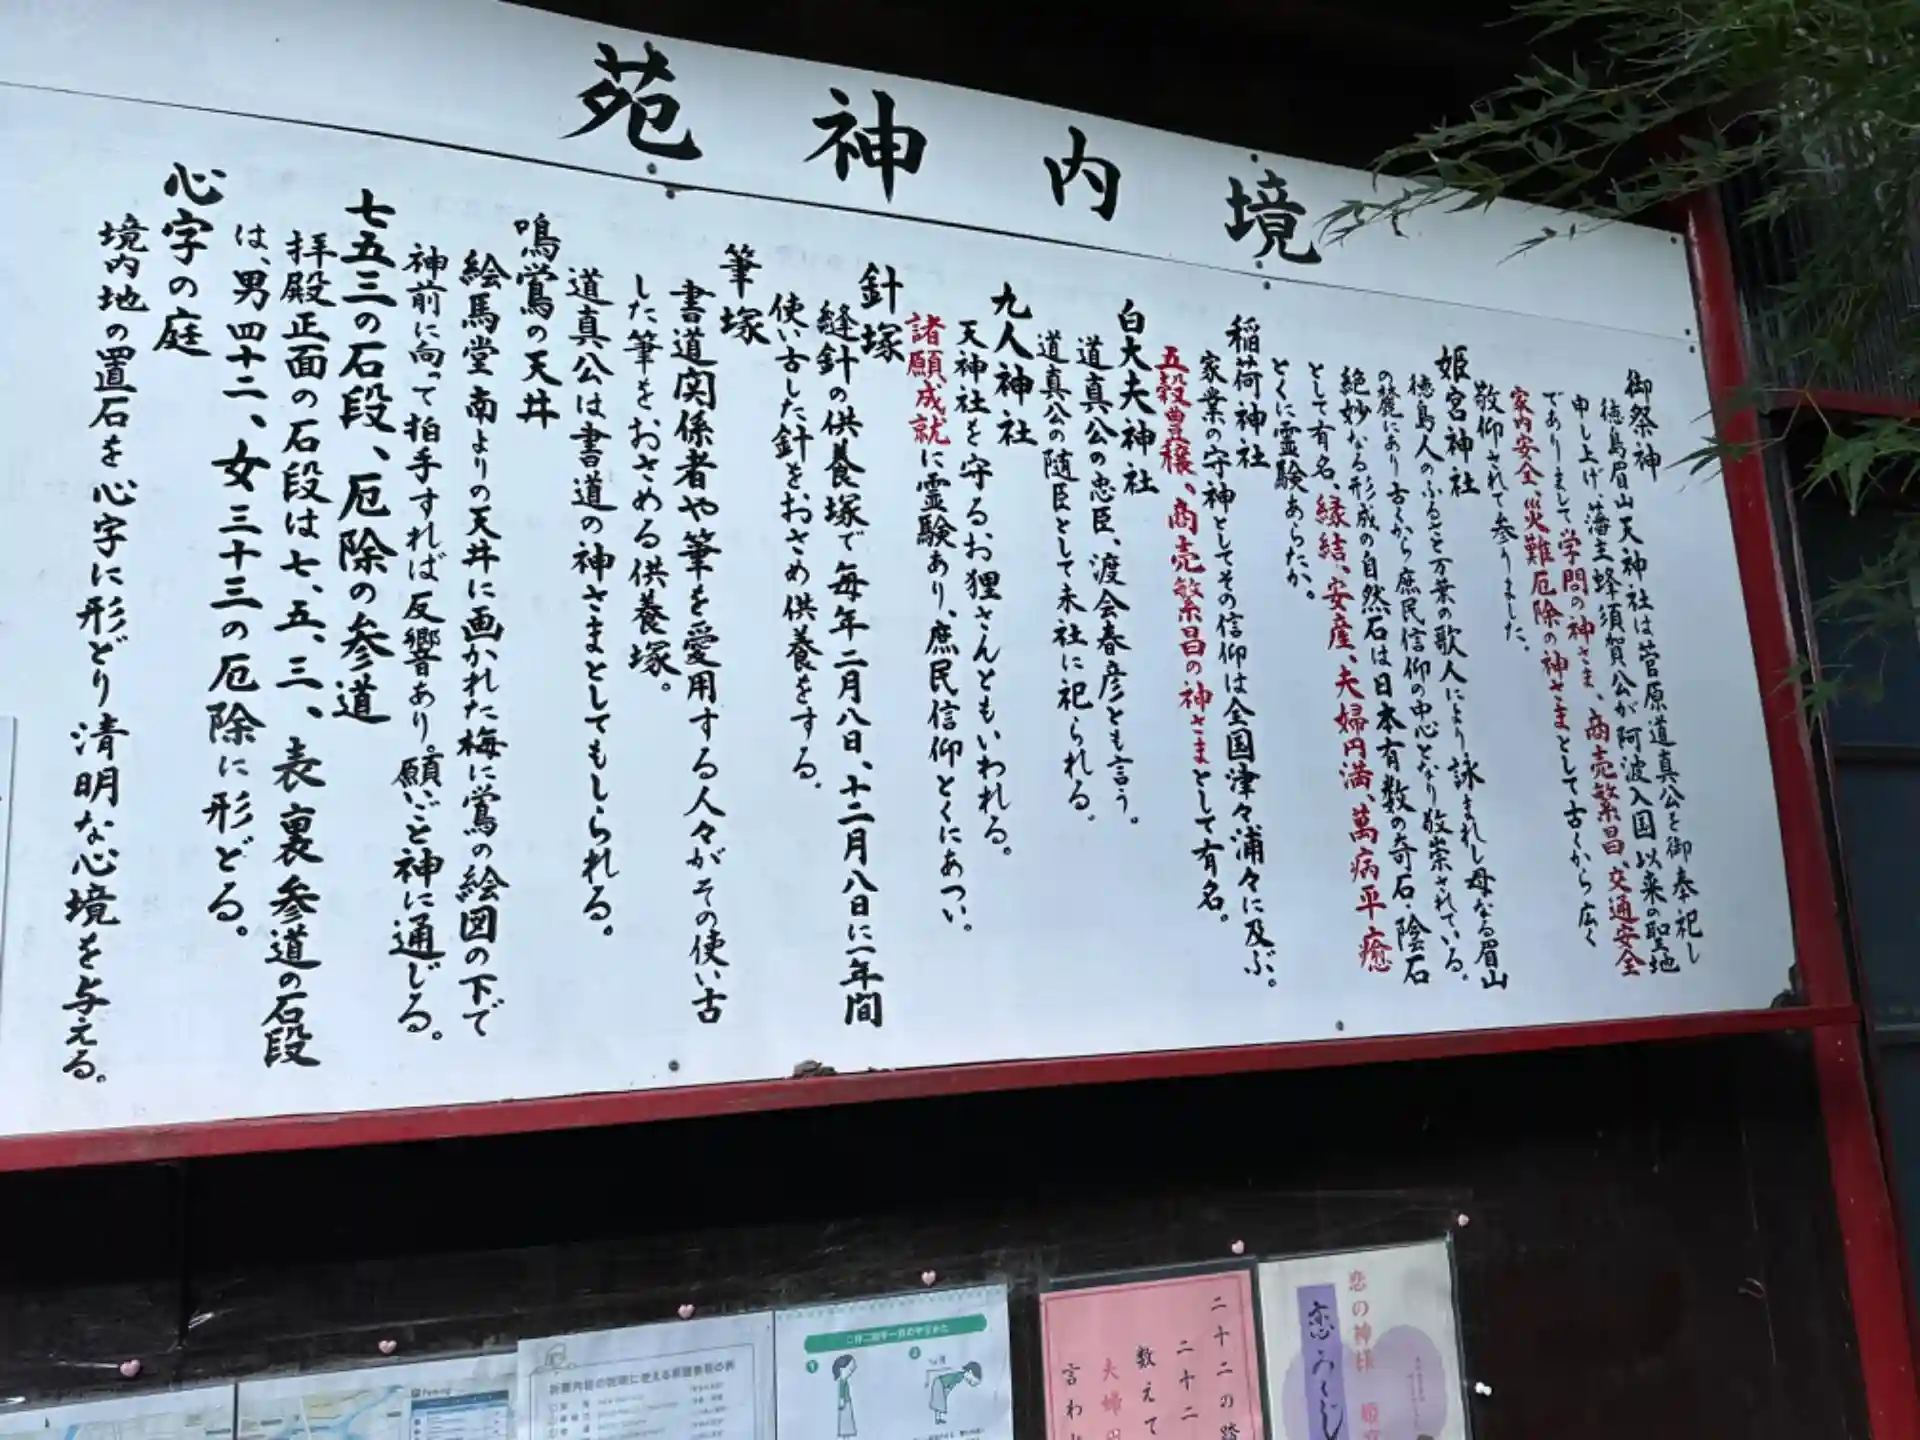 境内神苑
御祭神
徳島眉山天神社は菅原道真公を御奉祀し
申し上げ、藩主蜂須賀公が阿波入国以来の聖地
でありまして学問の神さま、商売繁昌、交通安全
家内安全、災難厄除の神さまとして古くから広く
敬仰されて参りました。
姫宮神社
徳島人のふるさと万葉の歌人により詠まれし母なる眉山
の麓にあり古くから庶民信仰の中心となり敬崇されている。
絶妙なる形成の自然石は日本有数の奇石・陰石
として有名、縁結、安産、夫婦円満、萬病平癒
とくに霊験あらたか。
稲荷神社
家業の守神としてその信仰は全国津々浦々に及ぶ。
五穀豊穣、商売繁昌の神さまとして有名。
白大夫神社
道真公の忠臣、渡会春彦とも言う。
道真公の随臣として末社に祀られる。
九人神社
天神社を守るお狸さんともいわれる。
諸願成就に霊験あり、庶民信仰とくにあつい。
針塚
縫針の供養塚で毎年二月八日、十二月八日に一年間
使い古した針をおさめ供養をする。
筆塚
書道関係者や筆を愛用する人々がその使い古
した筆をおさめる供養塚。
道真公は書道の神さまとしてもしられる。
鳴鴬の天井
絵馬堂南よりの天井に画かれた梅に鴬の絵図の下で
神前に向って拍手すれば反響あり。願いごと神に通じる。
七五三の石段、厄除の参道
拝殿正面の石段は七、五、三、表裏参道の石段
は、男四十二、女三十三の厄除に形どる。
心字の庭
境内地の置石を心字に形どり清明な心境を与える。
恋の神様
恋みくじ
二十二の
二十二
数えて
夫婦円
言わ
二拝二拍手一拝のやりかた
1
2